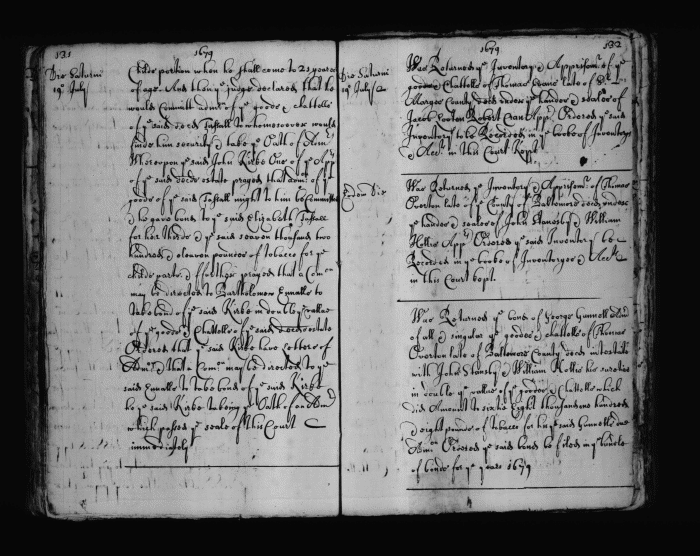 131
1679
Die Saturni
19º July
Childs portion when he shall come to 21 yeares
of age And then ye judge declared that he
would Committ Admr of ye goods & chattells
of ye said decd Tastall to whomsoever would
finde him security & take ye Oath of Admr
Whereupon ye said John Kirke One of ye App
of ye said decds estate prayed that Admr of ye
goods of ye said Tastall might to him be Committed
& he gave bond to ye said Elizabeth Tastall
for her thirds & ye said seaven thousand two
hundred & eleaven pounds of tobacco for ye
childs parts & further prayed that a Comn
may be directed to Bartholomew Ennalls to
take bond of ye said Kirke in double ye vallue
of ye goods & Chattells of ye said decds estate
Ordered that ye said Kirke have letters of
Admr & that a Comn may be directed to ye
said Ennalls to take bond of ye said Kirke
he ye said Kirke taking ye Oath of an Admr
which passed ye seale of this Court
immediately
1679
132
Die Saturni
19º July
Was Returned ye Inventory & Apprisemt of ye
goods & Chattells of Thomas Evans late of St
Maryes County decd under ye hands & seales of
Jacob Robert App Ordered ye said
Inventory to be Recorded in ye booke of Inventory
& Acct in this Court Kept
Eodem Die
Was Returned ye Inventory & Apprisemt of Thomas
Overton late of ye County of Baltemore decd under
ye hands & seales of John Stansby & William
Hollis App Ordered ye said Inventory be
Recorded in ye booke of Inventoryes & Acct
in this Court kept
Was Returned ye bond of George Gunnell Admr
of all & singular ye goods & chattells of Thomas
Overton late of Baltemore County decd intestate
with John Stansby & William Hollis his sureties
in double ye vallue of ye goods & Chattells which
did Amount to sixtie Eight thousand hundred
& eight pounds of tobacco for him ye said Gunnell's due
Admr Ordered ye said bond be filed in ye bundle
of bonds for ye yeare 1679